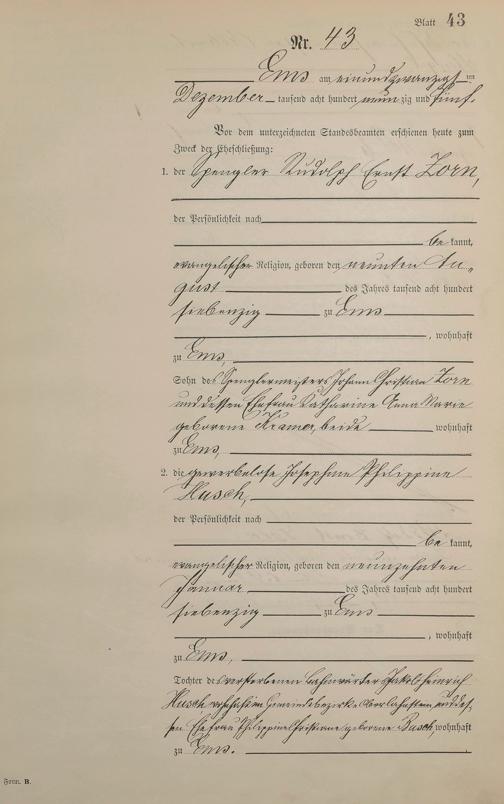 Blatt 43
Nr. 43
Ems am einundzwanzigsten
Dezember tausend acht hundert neunzig und fünf.
Vor dem unterzeichneten Standesbeamten erschienen heute zum
Zweck der Eheschließung:
1. der Spengler Rudolph Ernst Zorn,
der Persönlichkeit nach
be kannt,
evangelischer Religion, geboren den neunten Au„
gust des Jahres tausend acht hundert
siebenzig zu Ems
, wohnhaft
zu Ems,
Sohn des Spenglermeisters Johann Christian Zorn
und dessen Ehefrau Katharine Anna Marie
geborene Kramer, beide wohnhaft
zu Ems,
2. die gewerbelose Josephine Philippine
Husch,
der Persönlichkeit nach
be kannt,
evangelischer Religion, geboren den neunzehnten
Januar des Jahres tausend acht hundert
siebenzig zu Ems
, wohnhaft
zu Ems,
Tochter des verstorbenen Bahnwärters Jakob Heinrich
Husch, Gemeindebezirke Oberlahnstein, und des„
sen Ehefrau Philippine Christiane geborene Busch, wohnhaft
zu Ems.
Form. B.